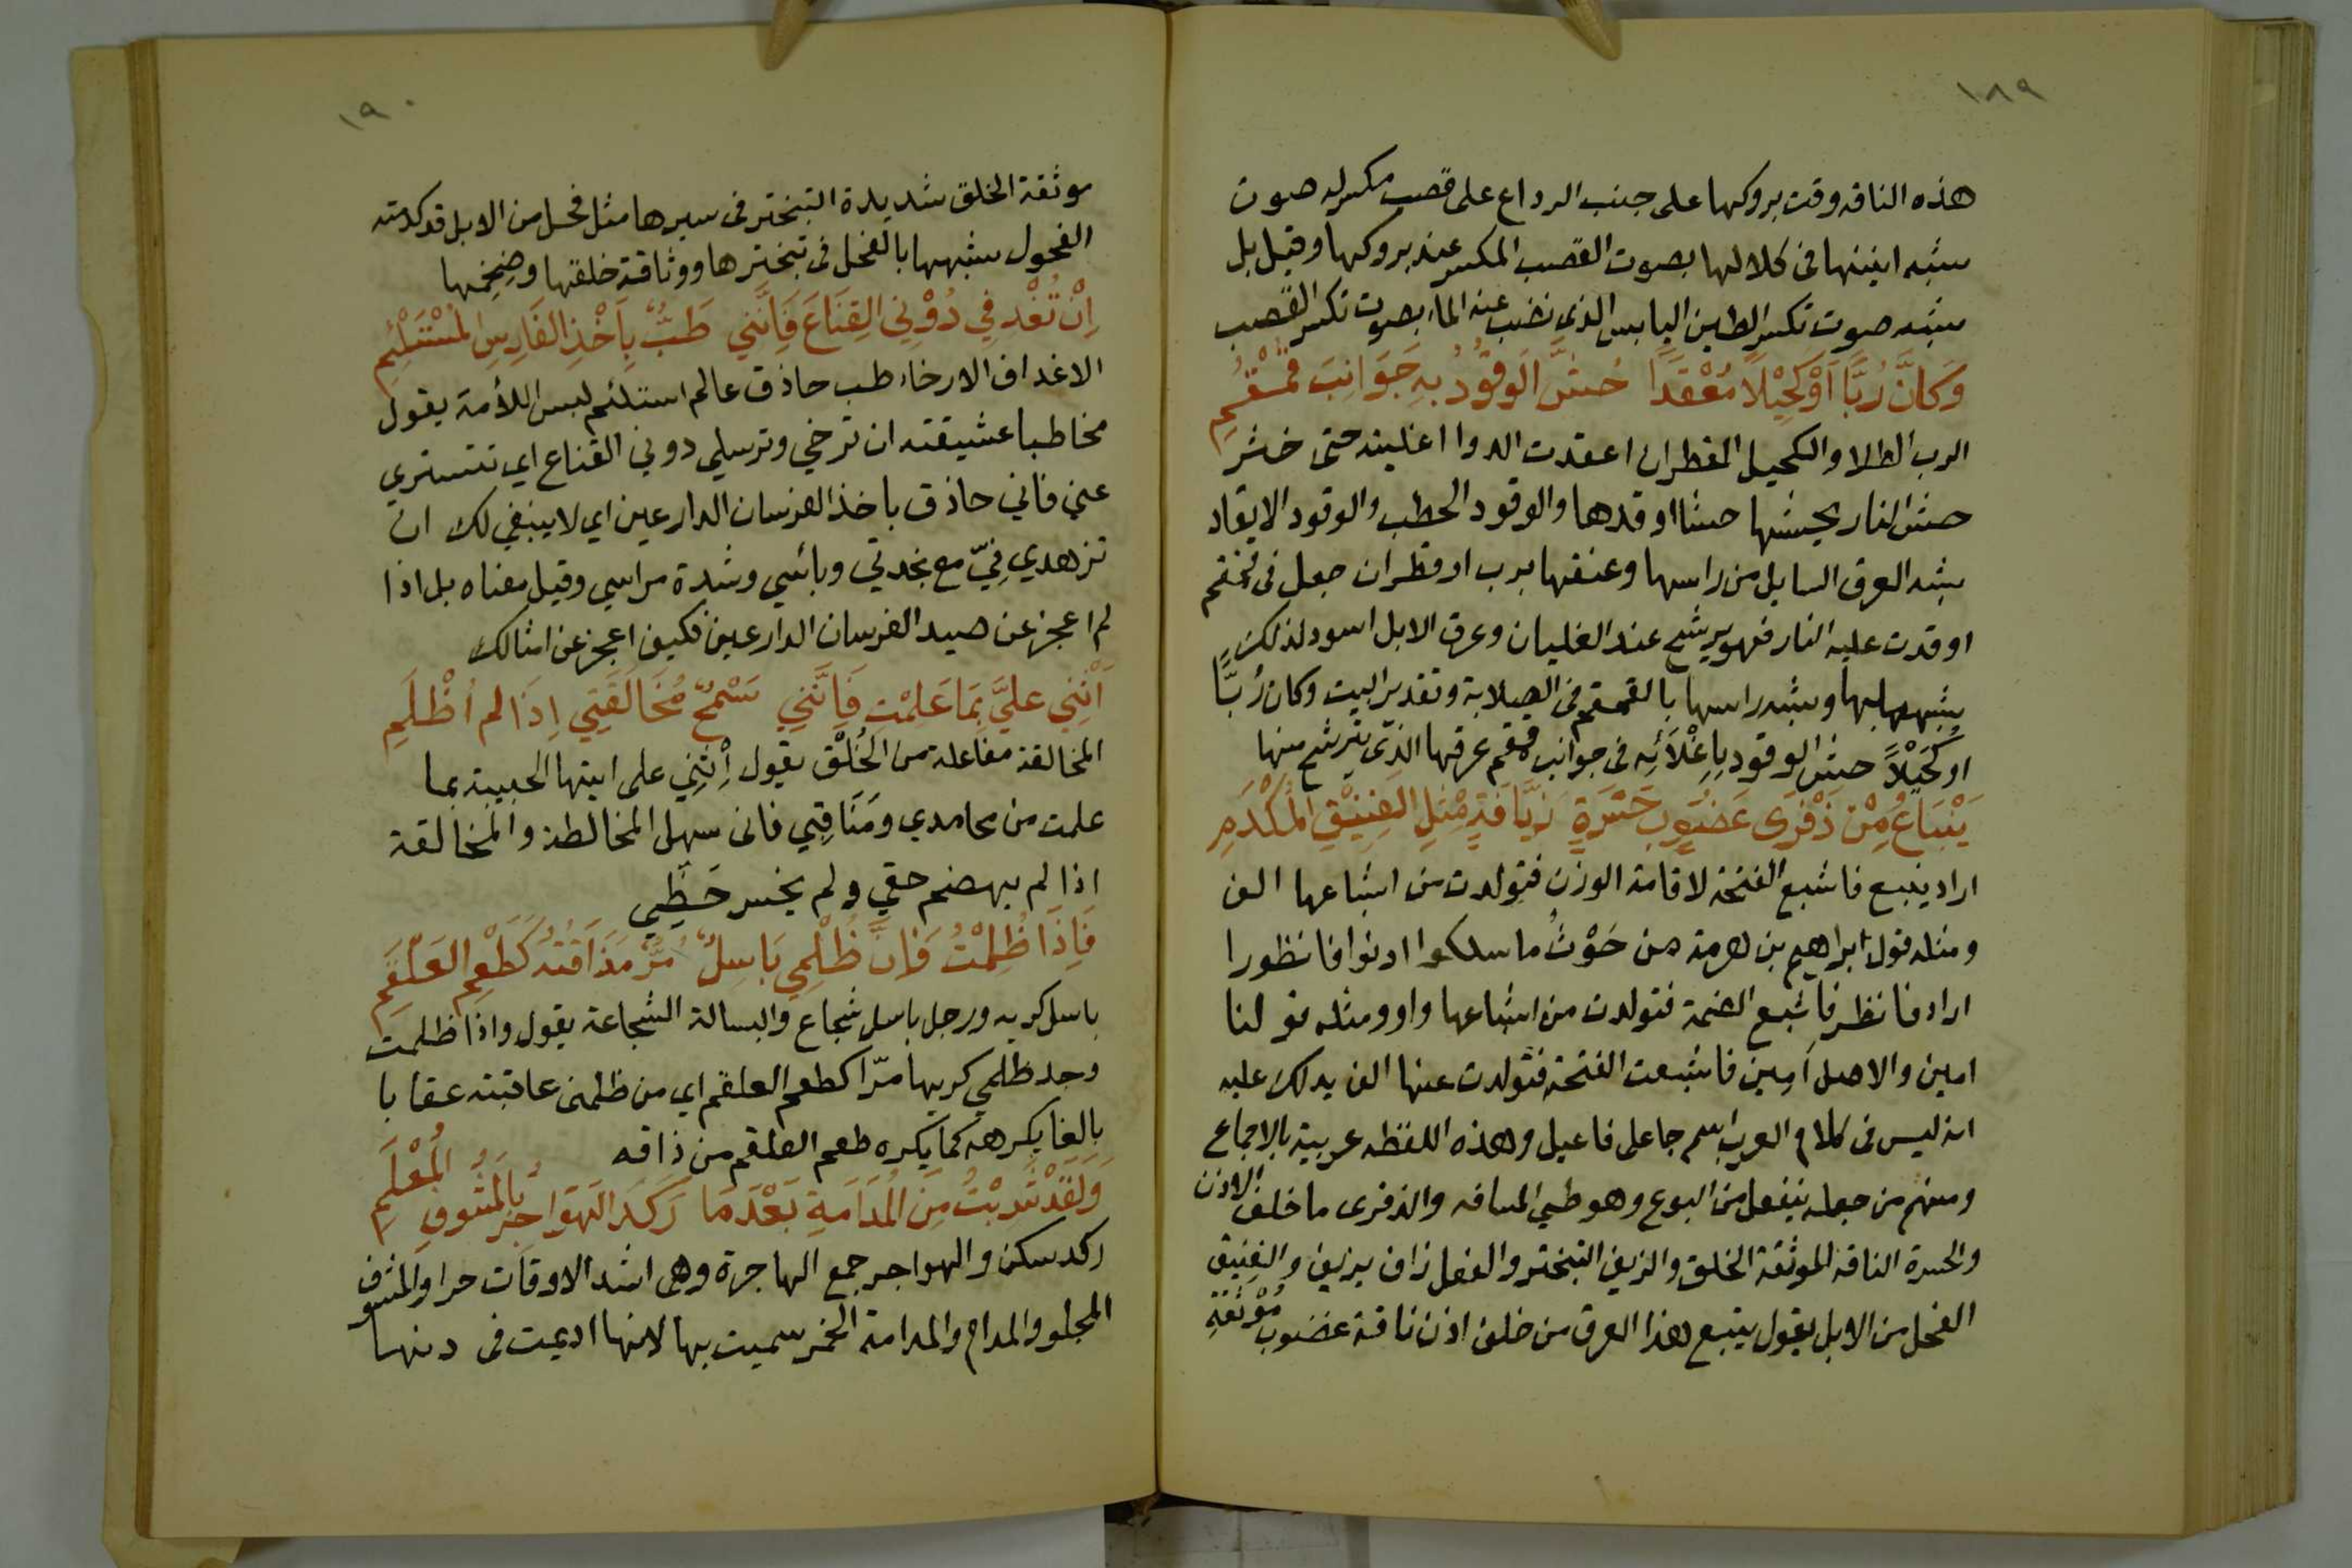 ١٨٩
هذه الناقه وقت بروكها على جنب الرداع على قصب مكسر له صوت
شبه انينها فى كلالها بصوت القصب المكسر عند بروكها وقيل بل
شبه صوت تكسر الطين اليابس الذي نضب عنه الماء بصوت تكسر القصب
وَكَاَنَّ رُبًّا اَوْ كَحِيْلًا مُعْقَدًا حُشَّ الوَقُوْدُ بِهِ جَوَانِبَ قُمْقُمِ
الرب الطلا والكحيل القطران اعقدت الدوا اغليته حتى خثر
حش النار يحشها حشا اوقدها والوقود الحطب والوقود الايقاد
شبه العرق السايل من راسها وعنقها برب او قطران جعل فى قمقم
اوقدت عليه النار فهو يرشح عند الغليان وعرق الابل اسود لذلك
شبهه بها وشبه راسها بالقمقم فى الصلابة وتقدير البيت وكان رُبًّا
او كُحَيْلًا حش الوقود بِاِغْلَائِه فى جوانب قمقم عرقها الذي يترشح منها
يَنْبَاعُ مِنْ ذَفْرَى غَضُوْبٍ جَسْرَةٍ زَيَّافَةٍ مِثْلِ الفَنِيْقِ المُكْدَمِ
اراد ينبع فاشبع الفتحة لاقامة الوزن فتولدت من اشباعها الف
ومثله قول ابراهيم بن هرمة من حَوْثُ ما سلكوا ادنوا فانظورا
اراد فانظر فاشبع الضمة فتولدت من اشباعها واو ومثله قولنا
امين والاصل اَمِين فاشبعت الفتحة فتولدت عنها الف يدلك عليه
انه ليس فى كلام العرب اسم جا على فاعيل وهذه اللفظه عربية بالاجماع
ومنهم من جعله ينفعل من البوع وهو طي المسافه والذفرى ما خلف الاذن
والجسرة الناقة الموثقة الخلق والزيف التبختر والفعل زاف يزيف والفنيق
الفحل من الابل يقول ينبع هذا العرق من خلف اذن ناقة غضوب مُوْثَقَةِ
١٩٠
موثقة الخلق شديدة التبختر فى سيرها مثل فحل من الابل قد كدمته
الفحول شبهها بالفحل فى تبخترها ووثاقة خلقها وضِخَمِها
اِنْ تُغْدِفِي دُوْنِي القِنَاعَ فَاِنَّنِي طَبٌّ بِاَخْذِ الفَارِسِ المُسْتَلْئِمِ
الاغداف الارخاء طب حاذق عالم استلئم لبس اللأمة يقول
مخاطبا عشيقته ان ترخي وترسلي دوني القناع اي تتستري
عني فاني حاذق باخذ الفرسان الدارعين اي لا ينبغي لك ان
تزهدي فِيّ مع نجدتي وبائسي وشدة مراسي وقيل معناه بل اذا
لم اعجز عن صيد الفرسان الدارعين فكيف اعجز عن امثالك
اَثْنِي عليَّ بِمَا عَلِمْتِ فَاِنَّنِي سَمْحٌ مُخَالَقَتِي اِذَا لم اُظْلَمِ
المخالقة مفاعلة من الخُلْق يقول اَثْنِي على ايتها الحبيبة بما
علمت من محامدي ومَنَاقِبِي فانى سهل المخالطة والمخالقة
اذا لم يهضم حقي ولم يبخس حَظِّي
فَاِذَا ظُلِمْتُ فَاِنَّ ظُلْمِي بَاسِلٌ مُرٌّ مَذَاقَتُهُ كَطَعْمِ العَلْقَمِ
باسل كريه ورجل باسل شجاع والبسالة الشجاعة يقول واذا ظلمت
وجد ظلمي كريها مرّا كطعم العلقم اي من ظلمنى عاقبته عقابا
بالغا يكرهه كما يكره طعم العلقم من ذاقه
وَلَقَدْ شَرِبْتُ مِنَ المُدَامَةِ بَعْدَمَا رَكَدَ الهَوَاجِرُ بِالمَشُوفِ المُعْلَمِ
ركد سكن والهواجر جمع الهاجرة وهى اشد الاوقات حرا والمشوف
المجلو والمدام والمدامة الخمر سميت بها لانها اديمت فى دنها